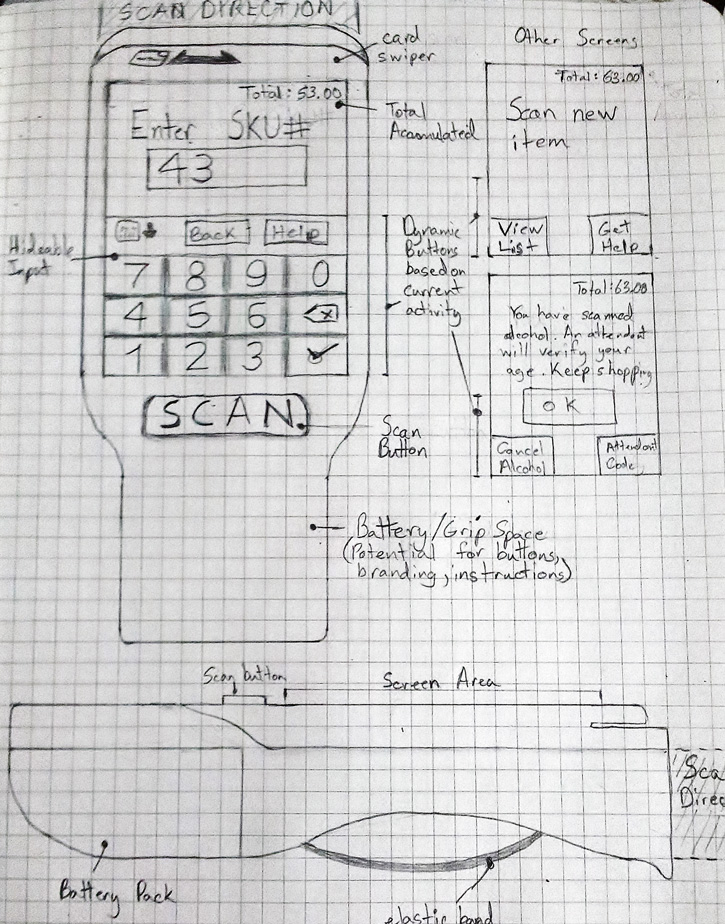 SCAN DIRECTION
card
swiper
Total: 53.00
Enter SKU#
43
Total
Accumulated
Hideable
Input
Back
Help
7 8 9 0
4 5 6
1 2 3
SCAN
Dynamic
Buttons
based on
current
activity
Scan
Button
Battery/Grip Space
(Potential for buttons,
branding, instructions)
Other Screens
Total: 63.00
Scan new
item
View
List
Get
Help
Total: 63.00
You have scanned
alcohol. An attendant
will verify your
age. Keep shopping
OK
Cancel
Alcohol
Attendant
Code
Scan button
Screen Area
Sca
Direc
Battery Pack
elastic band